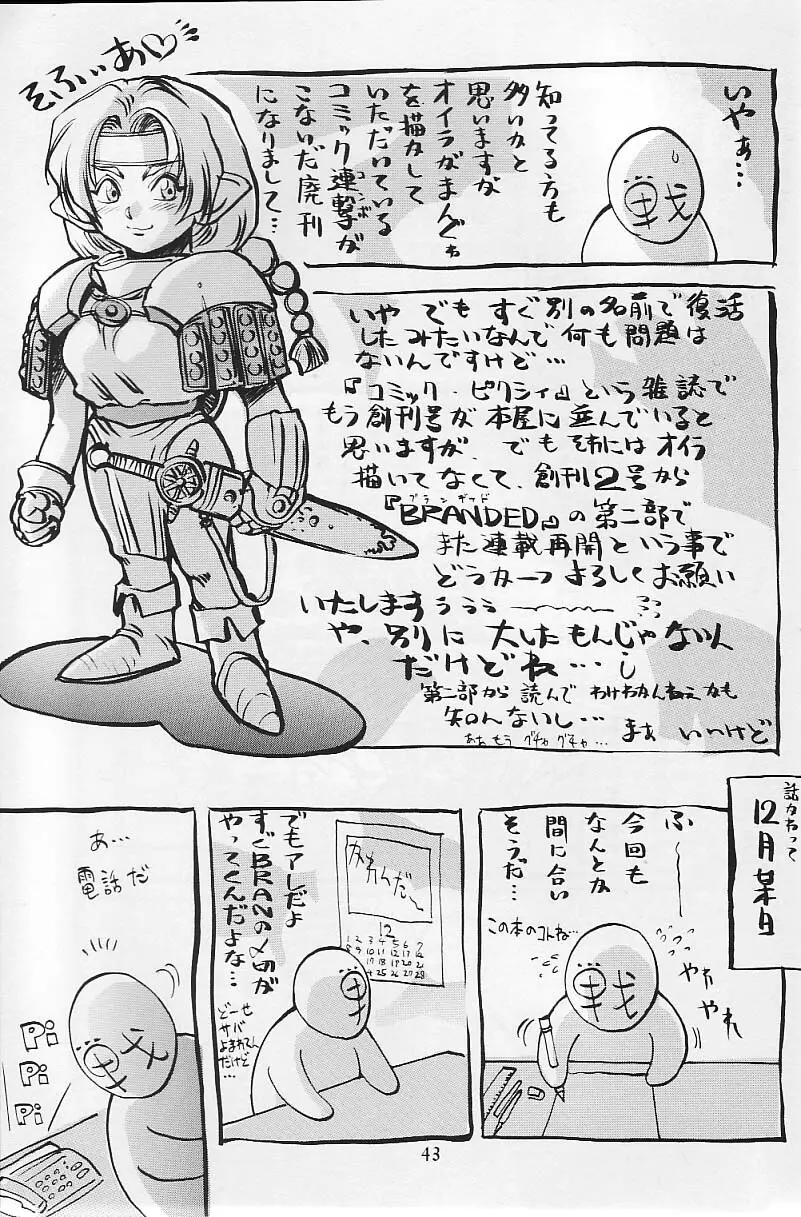 いやぁ…
知ってる方も
多いかと
思いますが
オイラがまんがぁ
を描かして
いただいている
コミック連撃が
コンボ
こないだ廃刊
になりまして…
そふぃあ♡
いや でも すぐ別の名前で復活
したみたいなんで何も問題は
ないんですけど…
『コミック・ピクシィ』という雑誌で
もう創刊号が本屋に並んでいると
思いますが、でもそれにはオイラ
描いてなくて、創刊2号から
『BRANDED』の第二部で
また連載再開という事で
どうか一つよろしくお願い
いたしますぅぅぅ
や、別に大したもんじゃないん
だけどね…
第二部から読んでわけわかんねェかも
知んないし…
まぁいいけど
ああもうグチャグチャ…
話かわって
12月某日
ふ〜
今回も
なんとか
間に合い
そうだ…
この本のコトね…
やれ
やれ
戦
でもアレだよ
すぐBRANの〆切が
やってくんだよな…
どーせ
サバ
よまれてん
だけど
…
12
1 2 3 4 5 6 7
あ…
電話だ
Pi
Pi
Pi
43